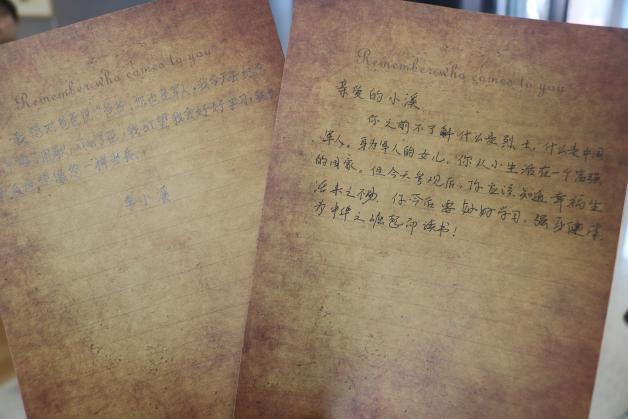 Remember who comes to you
我想对爸爸说“爸爸,您也是军人,我今天去
我会好好学习,
一样当兵。
Remember who comes to you
亲爱的小溪
你之前不了解什么是烈士,什么是中国
军人。身为军人的女儿,你从小生活在一个富强
的国家。但今天参观后,你应该知道幸福生
活来之不易。你今后要好好学习,强身健体
为中华之崛起而读书!